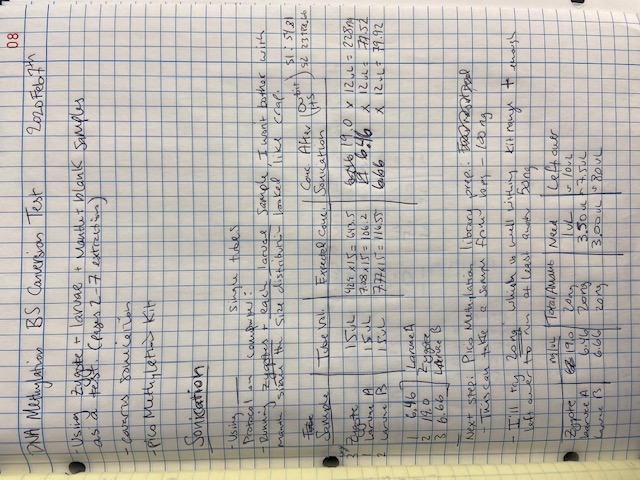 08
DNA Methylation BS Conversion Test 2020 Feb 7th
- Using Zygote + larvae + Mantle + blank samples
as a test. (pages 2-7 extraction)
- covaris sonication
- pico Methylation Kit
Sonication
- Using ___ single tubes
Protocol on computer:
- Running zygotes + each larvae sample, I wont bother with
mantle since the size distribution looked like crap.
Sample | Tube Vol. | Expected Conc. | Conc After Sonication (Qubit HS)
3 Zygote | 15uL | 42.9 x 15 = 643.5 | 19.0 x 12uL = 228ng
1 Larvae A | 15uL | 7.08 x 15 = 106.2 | 6.46 x 12uL = 77.52
2 Larvae B | 15uL | 7.77 x 15 = 116.55 | 6.66 x 12uL = 79.92
1 6.46 Larvae A
2 19.0 Zygote
3 6.66 Larvae B
Next step: Pico Methylation library prep.
- This can take a sample from 10ng - 100ng
- I'll try 20ng which is well within kit range + enough
left over to run at least another 50ng
ng/uL | Total Amount | Need | Left over
Zygote | 19.0 | 20ng | 1uL | ~10uL
Larvae A | 6.46 | 20ng | 3.50uL | ~7.5uL
Larvae B | 6.66 | 20ng | 3.00uL | ~8.0uL